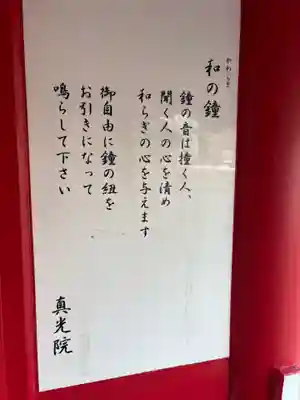 和の鐘
鐘の音は撞く人、
聞く人の心を清め
和らぎの心を与えます
御自由に鐘の紐を
お引きになって
鳴らして下さい
真光院